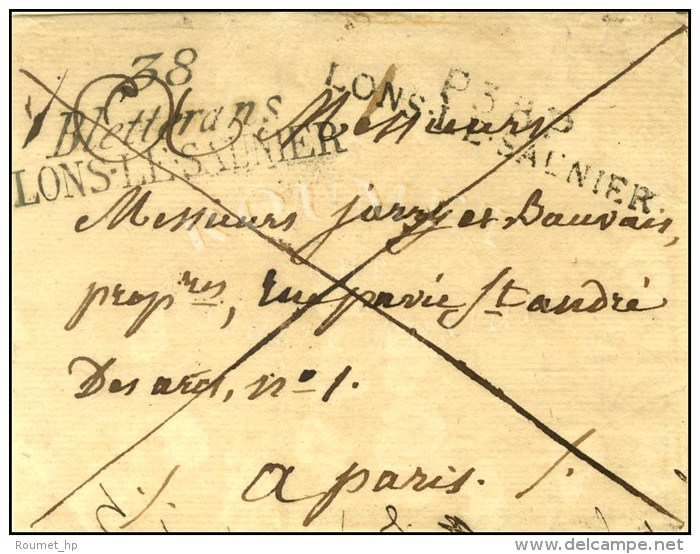 38
Bletterans
LONS-LE-SAUNIER
P38P
LONS-LE-SAUNIER.
Messieurs
Messieurs Jarry et Bauvais,
propres, Rue pavée St andré
Des arts, no 1.
a paris.
Roumet_hp
© www.delcampe.net